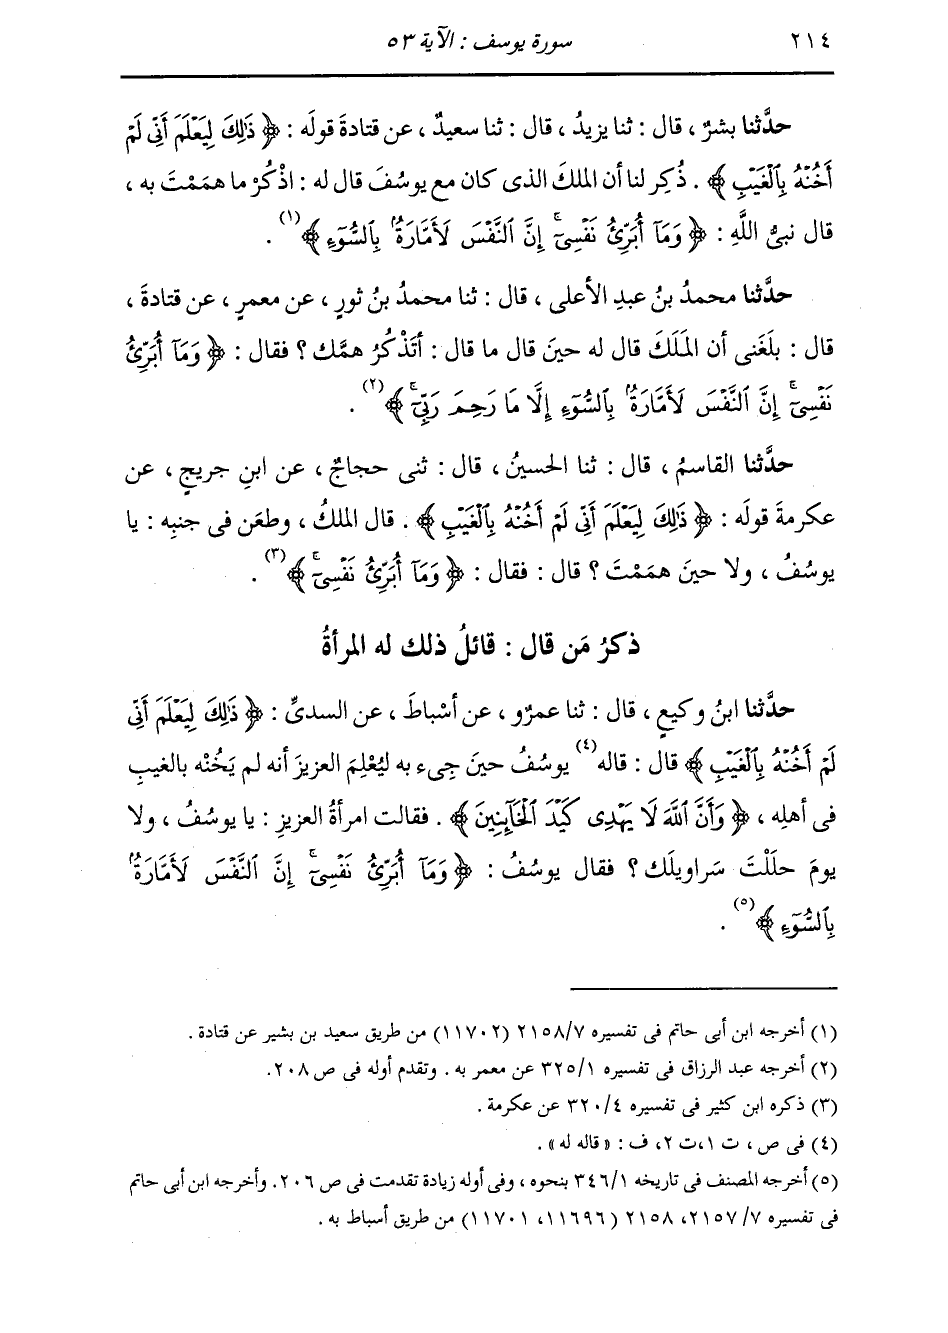 ٢١٤ سورة يوسف : الآية ٥٣
حدَّثنا بشرٌ ، قال : ثنا يزيدُ ، قال : ثنا سعيدٌ ، عن قتادةَ قولَه : ﴿ ذَٰلِكَ لِيَعْلَمَ أَنِّي لَمْ
أَخُنْهُ بِٱلْغَيْبِ ﴾ . ذُكِر لنا أن الملكَ الذى كان مع يوسُفَ قال له : اذْكُرْ ما همَمْتَ به ،
قال نبيُّ اللَّهِ : ﴿ وَمَآ أُبَرِّئُ نَفْسِىٓ ۚ إِنَّ ٱلنَّفْسَ لَأَمَّارَةٌۢ بِٱلسُّوٓءِ ﴾(١) .
حدَّثنا محمدُ بنُ عبدِ الأعلى ، قال : ثنا محمدُ بنُ ثورٍ ، عن معمرٍ ، عن قتادةَ ،
قال : بلَغنى أن المَلَكَ قال له حينَ قال ما قال : أتَذْكُرُ همَّك ؟ فقال : ﴿ وَمَآ أُبَرِّئُ
نَفْسِىٓ ۚ إِنَّ ٱلنَّفْسَ لَأَمَّارَةٌۢ بِٱلسُّوٓءِ إِلَّا مَا رَحِمَ رَبِّىٓ ۚ ﴾(٢) .
حدَّثنا القاسمُ ، قال : ثنا الحسينُ ، قال : ثنى حجاجٌ ، عن ابنِ جريجٍ ، عن
عكرمةَ قولَه : ﴿ ذَٰلِكَ لِيَعْلَمَ أَنِّي لَمْ أَخُنْهُ بِٱلْغَيْبِ ﴾ . قال الملكُ ، وطعَن فى جنبِه : يا
يوسُفُ ، ولا حينَ همَمْتَ ؟ قال : فقال : ﴿ وَمَآ أُبَرِّئُ نَفْسِىٓ ۚ ﴾(٣) .
ذكرُ مَن قال : قائلُ ذلك له المرأةُ
حدَّثنا ابنُ وكيعٍ ، قال : ثنا عمرٌو ، عن أسْباطَ ، عن السدىِّ : ﴿ ذَٰلِكَ لِيَعْلَمَ أَنِّي
لَمْ أَخُنْهُ بِٱلْغَيْبِ ﴾ قال : قاله(٤) يوسُفُ حينَ جِىء به ليُعْلِمَ العزيزَ أنه لم يَخُنْه بالغيبِ
فى أهلِه ، ﴿ وَأَنَّ ٱللَّهَ لَا يَهْدِى كَيْدَ ٱلْخَآئِنِينَ ﴾ . فقالت امرأةُ العزيزِ : يا يوسُفُ ، ولا
يومَ حلَلْتَ سَراويلَك ؟ فقال يوسُفُ : ﴿ وَمَآ أُبَرِّئُ نَفْسِىٓ ۚ إِنَّ ٱلنَّفْسَ لَأَمَّارَةٌۢ
بِٱلسُّوٓءِ ﴾(٥) .
(١) أخرجه ابن أبى حاتم فى تفسيره ٢١٥٨/٧ (١١٧٠٢) من طريق سعيد بن بشير عن قتادة .
(٢) أخرجه عبد الرزاق فى تفسيره ٣٢٥/١ عن معمر به . وتقدم أوله فى ص ٢٠٨.
(٣) ذكره ابن كثير فى تفسيره ٣٢٠/٤ عن عكرمة .
(٤) فى ص ، ت ١، ت ٢، ف : «قاله له» .
(٥) أخرجه المصنف فى تاريخه ٣٤٦/١ بنحوه ، وفى أوله زيادة تقدمت فى ص ٢٠٦. وأخرجه ابن أبى حاتم
فى تفسيره ٢١٥٧/٧، ٢١٥٨ (١١٦٩٦، ١١٧٠١) من طريق أسباط به .